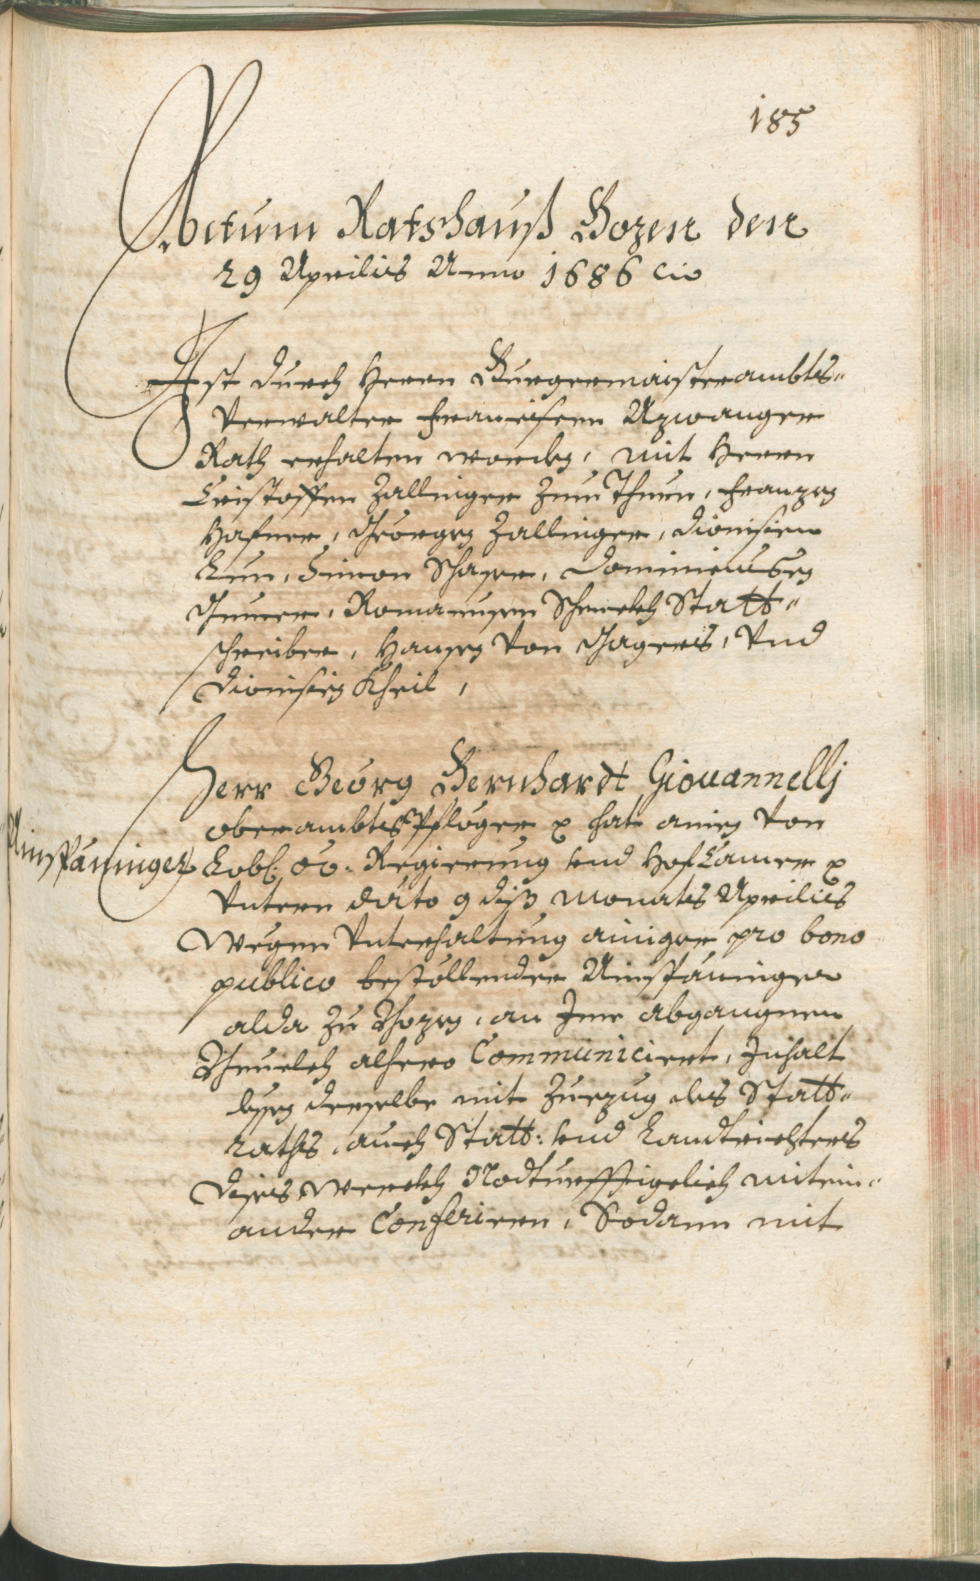 185
Actum Ratshauß Bozen den
29 Aprilis Anno 1686 cio
Ist durch Herrn Burgermaisterambts-
Verwalter Francisen Azwanger
Rath erhalten worden, mit Herrn
Cristoffen Zallinger zum Thurn, Franzen
Hafner, Georgen Zallinger, Dionisien
Lun, Simon Schasser, Dominicußen
Gumer, Romanusen Schenkh Statt-
schreiber, Hansen von Gagers, vnd
Dionisien Kheil,
Herr Georg Bernhardt Giouannellj
oberambts Pfleger hat ainen von
Ainspäninger Löbl: OÖ: Regierung vnd Hof Camer
vntern dato 9 diß monats Aprilis
wegen vnterhaltung ainiger pro bono
publico bestöllender Ainspäninger
alda zu Bozen, an Ime abgangnen
Beuelch alhero Communiciert, Inhalt
dessen derselbe mit Zuezug des Statt-
raths, auch Statt: vnd Landtrichters
dises werckh Nodturfftigelich mitein-
ander Conferieren, Sodann mit